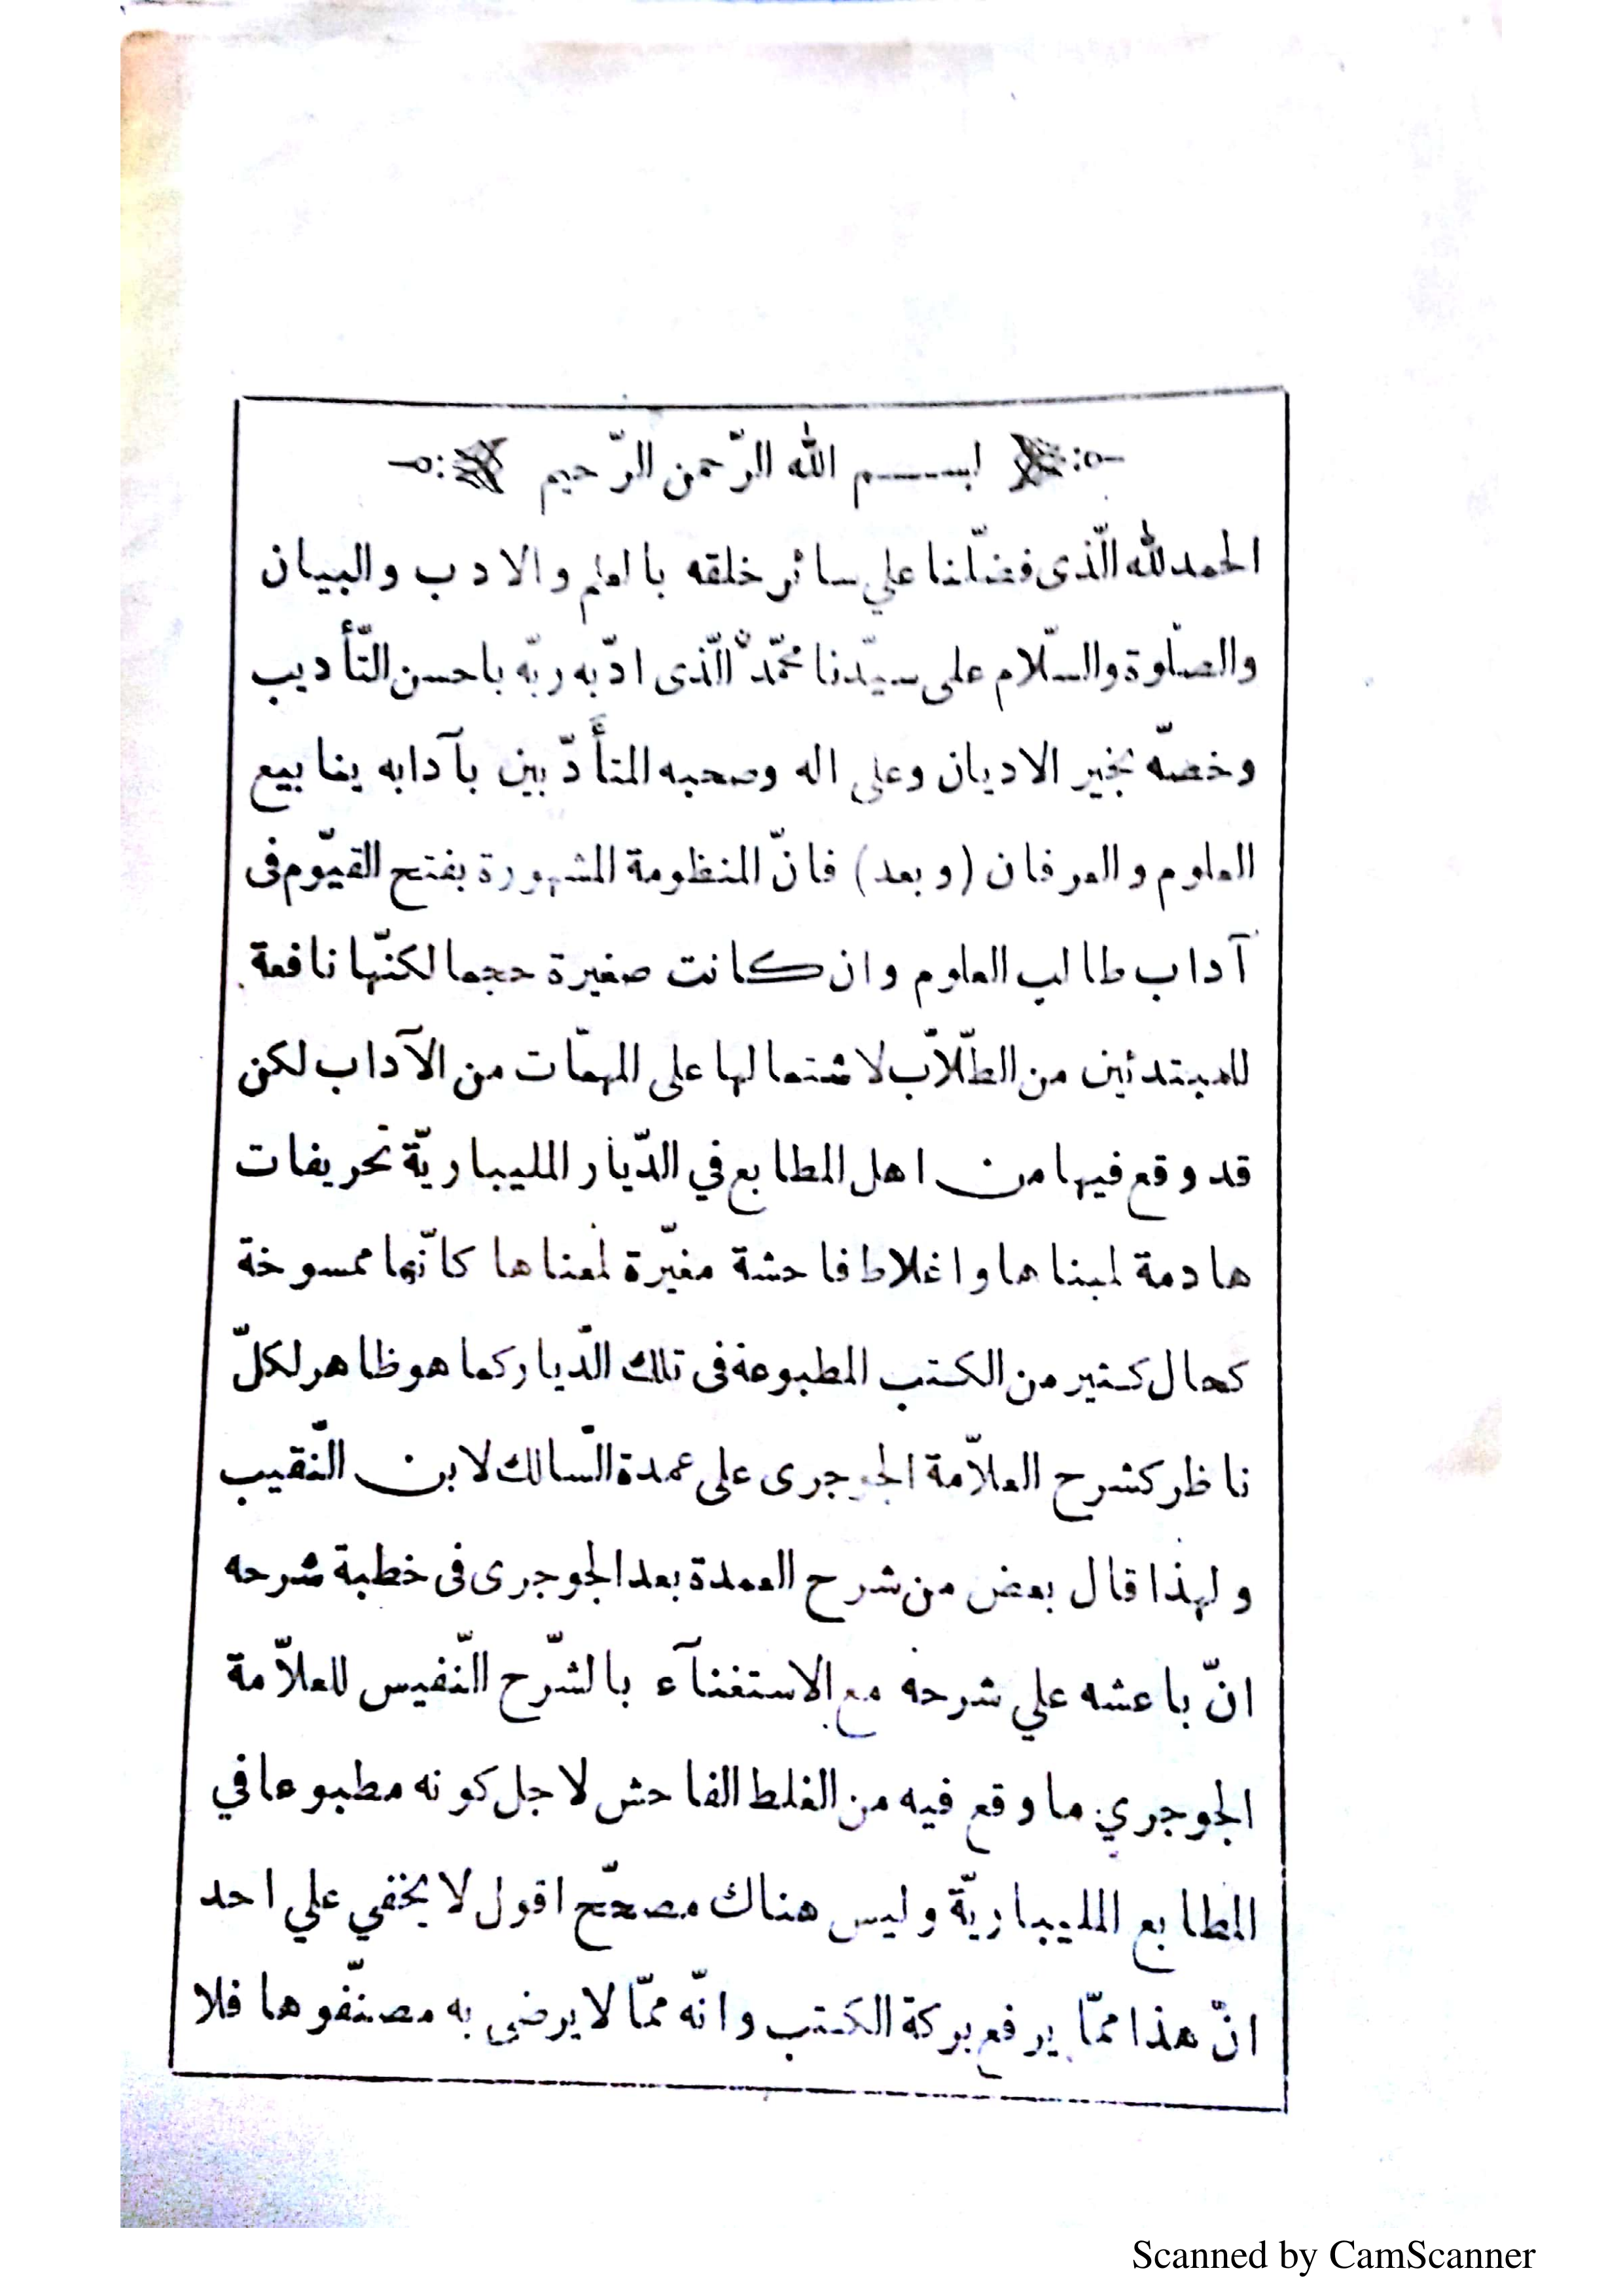 بســـم الله الرّحمن الرّحيم
الحمدلله الّذى فضّلنا علي سائر خلقه بالعلم والادب والبيان
والصلوة والسّلام على سيّدنا محمّد الّذى ادّبه ربّه باحسن التّأديب
وخصّه بخير الاديان وعلى اله وصحبه المتأدّبين بآدابه ينابيع
العلوم والعرفان (وبعد) فانّ المنظومة المشهورة بفتح القيّوم فى
آداب طالب العلوم وان كانت صغيرة حجما لكنّها نافعة
للمبتدئين من الطّلاّب لاشتمالها على المهمّات من الآداب لكن
قد وقع فيها من اهل المطابع في الدّيار المليباريّة تحريفات
هادمة لمبناها واغلاط فاحشة مغيّرة لمعناها كانّها ممسوخة
كحال كثير من الكتب المطبوعة فى تلك الدّيار كما هو ظاهر لكلّ
ناظر كشرح العلاّمة الجوجرى على عمدة السّالك لابن النّقيب
ولهذا قال بعض من شرح العمدة بعد الجوجرى فى خطبة شرحه
انّ باعثه علي شرحه مع الاستغنآء بالشّرح النّفيس للعلاّمة
الجوجري ما وقع فيه من الغلط الفاحش لاجل كونه مطبوعا في
المطابع المليباريّة وليس هناك مصحّح اقول لا يخفي علي احد
انّ هذا ممّا يرفع بركة الكتب وانّه ممّا لا يرضى به مصنّفوها فلا
Scanned by CamScanner